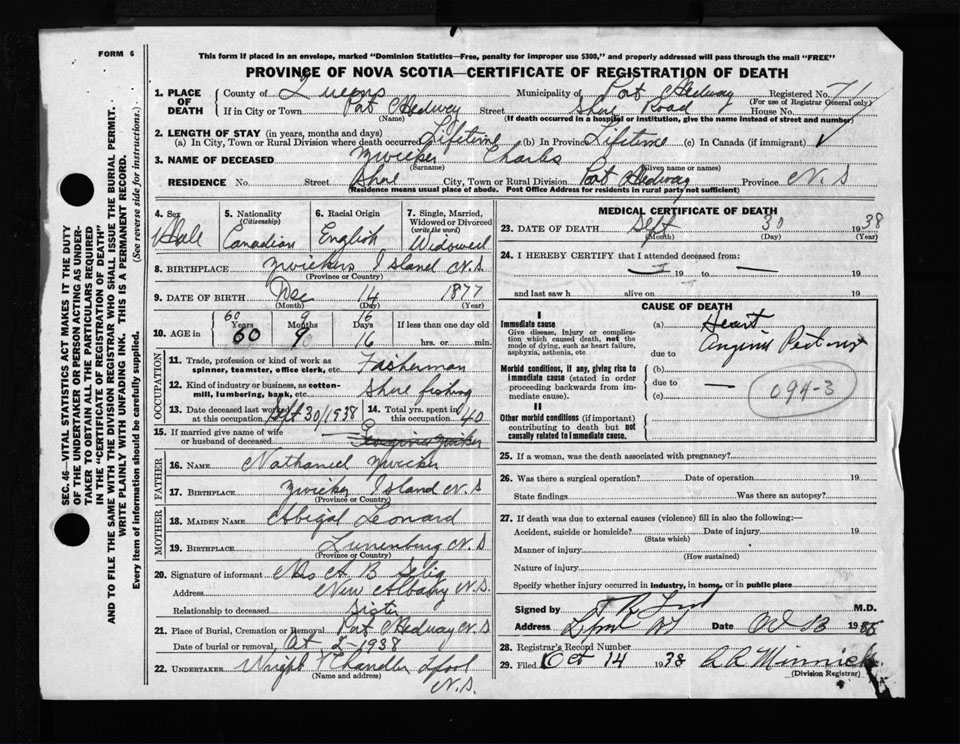 FORM 6
This form if placed in an envelope, marked "Dominion Statistics—Free, penalty for improper use $300," and properly addressed will pass through the mail "FREE"
PROVINCE OF NOVA SCOTIA—CERTIFICATE OF REGISTRATION OF DEATH
SEC. 46—VITAL STATISTICS ACT MAKES IT THE DUTY
OF THE UNDERTAKER OR PERSON ACTING AS UNDER-
TAKER TO OBTAIN ALL THE PARTICULARS REQUIRED
IN THE "CERTIFICATE OF REGISTRATION OF DEATH"
AND TO FILE THE SAME WITH THE DIVISION REGISTRAR WHO SHALL ISSUE THE BURIAL PERMIT.
WRITE PLAINLY WITH UNFADING INK. THIS IS A PERMANENT RECORD.
Every item of information should be carefully supplied. (See reverse side for instructions.)
1. PLACE OF DEATH County of Queens Municipality of Port Medway Registered No. 71
(For use of Registrar General only)
If in City or Town Port Medway Street Shore Road House No.
(Name) (If death occurred in a hospital or institution, give the name instead of street and number)
2. LENGTH OF STAY (in years, months and days)
(a) In City, Town or Rural Division where death occurred Lifetime (b) In Province Lifetime (c) In Canada (if immigrant)
3. NAME OF DECEASED Zwicker Charles
(Surname) (Given name or names)
RESIDENCE No. Street Shore City, Town or Rural Division Port Medway Province N.S
(Residence means usual place of abode. Post Office Address for residents in rural party not sufficient)
4. Sex Male
5. Nationality (Citizenship) Canadian
6. Racial Origin English
7. Single, Married, Widowed or Divorced (write the word) Widowed
8. BIRTHPLACE Zwickers Island N.S
(Province or Country)
9. DATE OF BIRTH Dec 14 1877
(Month) (Day) (Year)
10. AGE in 60 Years 9 Months 16 Days If less than one day old
60 9 16 hrs. or min.
OCCUPATION
11. Trade, profession or kind of work as spinner, teamster, office clerk, etc. Fisherman
12. Kind of industry or business, as cotton-mill, lumbering, bank, etc. Shore fishing
13. Date deceased last worked at this occupation Sept 30/1938 14. Total yrs. spent in this occupation 40
15. If married give name of wife or husband of deceased
FATHER
16. NAME Nathaniel Zwicker
17. BIRTHPLACE Zwicker Island N.S
(Province or Country)
MOTHER
18. MAIDEN NAME Abigal Leonard
19. BIRTHPLACE Lunenburg N.S
(Province or Country)
20. Signature of informant Mrs A B Selig
Address New Albany N.S.
Relationship to deceased Sister
21. Place of Burial, Cremation or Removal Port Medway N.S
Date of burial or removal Oct 2-1938
22. UNDERTAKER Wright & Chandler Lpool
(Name and address) N.S.
MEDICAL CERTIFICATE OF DEATH
23. DATE OF DEATH Sept 30 1938
(Month) (Day) (Year)
24. I HEREBY CERTIFY that I attended deceased from:
19 to 19
and last saw h alive on 19
CAUSE OF DEATH
I
Immediate cause (a) Heart
Give disease, injury or complication which caused death, not the mode of dying, such as heart failure, asphyxia, asthenia, etc
Angina Pectoris
due to
Morbid conditions, if any, giving rise to immediate cause (stated in order proceeding backwards from immediate cause).
(b)
due to
(c)
094-3
II
Other morbid conditions (if important) contributing to death but not causally related to immediate cause.
25. If a woman, was the death associated with pregnancy?
26. Was there a surgical operation? Date of operation 19
State findings Was there an autopsy?
27. If death was due to external causes (violence) fill in also the following:—
Accident, suicide or homicide? Date of injury 19
(State which)
Manner of injury
(How sustained)
Nature of injury
Specify whether injury occurred in industry, in home, or in public place
Signed by M.D.
Address Date Oct 13 19
28. Registrar's Record Number
29. Filed Oct 14 1938 Minnick
(Division Registrar)